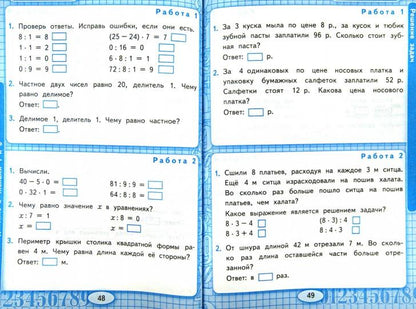 Работа 1
1. Проверь ответы. Исправь ошибки, если они есть.
8 : 1 = 8
(25 − 24) · 7 = 7
1 · 1 = 2
0 : 16 = 0
1 : 1 = 0
6 · 8 : 1 = 1
0 : 9 = 9
72 : 8 : 1 = 9
2. Частное двух чисел равно 20, делитель 1. Чему
равно делимое?
Ответ:
3. Делимое 1, делитель 1. Чему равно частное?
Ответ:
Работа 2
1. Вычисли.
40 − 5 · 0 =
81 : 9 : 9 =
0 · 32 · 1 =
64 : 8 : 8 =
2. Чему равно значение x в уравнениях?
x : 7 = 1
x : 8 = 0
x =
x =
3. Периметр крышки столика квадратной формы ра-
вен 4 м. Чему равна длина каждой её стороны?
Ответ: м.
48
Работа 1
1. За 3 куска мыла по цене 8 р., за кусок и тюбик
зубной пасты заплатили 96 р. Сколько стоит зуб-
ная паста?
Ответ: р.
2. За 4 одинаковых по цене носовых платка и
упаковку бумажных салфеток заплатили 52 р.
Салфетки стоят 12 р. Какова цена носового
платка?
Ответ: р.
Работа 2
1. Сшили 8 платьев, расходуя на каждое 3 м ситца.
Ещё 4 м ситца израсходовали на пошив халата.
Во сколько раз больше пошло ситца на пошив
платьев, чем халата?
Какое выражение является решением задачи?
8 · 3 − 4
(8 · 3) : 4
8 · 3 + 4
8 : 4 · 3
2. От шнура длиной 42 м отрезали 7 м. Во сколь-
ко раз длина оставшейся части больше отре-
занной?
Ответ: в раз.
49
Решение задач